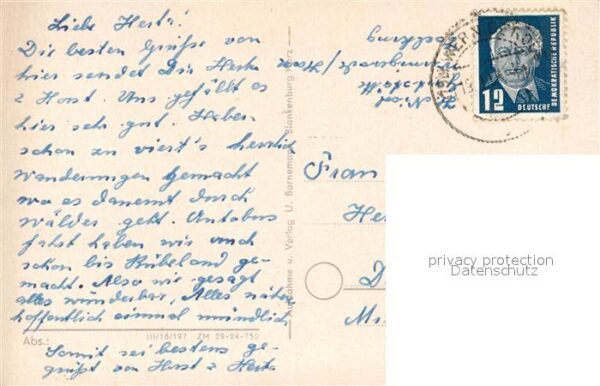 Liebe Herta!
Die besten Grüße von
hier sendet Dir Herta
& Horst. Uns gefällt es
hier sehr gut. Haben
schon zu viert's herrlich
Wanderungen gemacht
wo es dauernd durch
wälder geht. Autobus
fahrt haben wir auch
schon bis Rübeland ge-
macht. Also wie gesagt
alles wunderbar, Alles näher
hoffentlich einmal mündlich
III/18/197 ZM 59-24-750
Abs.:
Somit sei bestens ge-
grüßt von Horst & Herta
Aufnahme u. Verlag U. Bornemann, Blankenburg Harz
12
DEUTSCHE
DEMOKRATISCHE REPUBLIK
Frau
He
D
privacy protection
Datenschutz